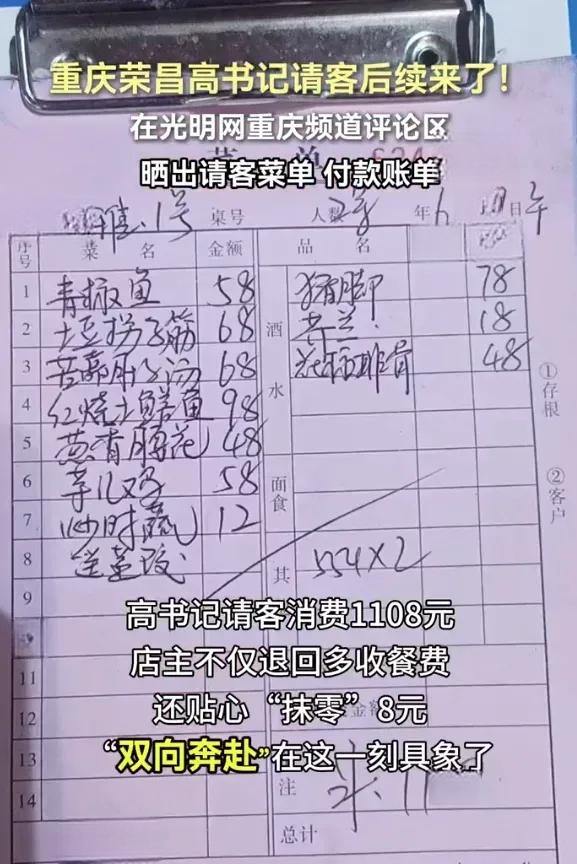 重庆荣昌高书记请客后续来了!
在光明网重庆频道评论区
晒出请客菜单 付款账单
菜 单
1号 桌号 人数 年 6 日 午
序号 菜 名 金额 品 名
1 青椒鱼 58 猪脚 78
2 筋 68 酒 18
3 苦藠肚子汤 68 水 48
4 红烧土鳝鱼 98
5 葱香腰花 48
6 58 面食
7 炒时蔬 12
8 其 554×2
9
高书记请客消费1108元
店主不仅退回多收餐费
11
还贴心“抹零”8元
12 金额
“双向奔赴”在这一刻具象了
13
14 注
总计
①存根
②客户